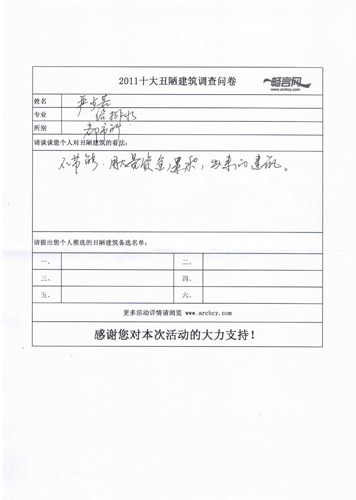 2011十大丑陋建筑调查问卷
畅言网
www.archcy.com
姓名
专业 给排水
所别
请谈谈您个人对丑陋建筑的看法:
不节能,用大量资金累积,出来的建筑。
请提出您个人推选的丑陋建筑备选名单:
一、 二、
三、 四、
五、 六、
更多活动详情请浏览 www.archcy.com
感谢您对本次活动的大力支持!